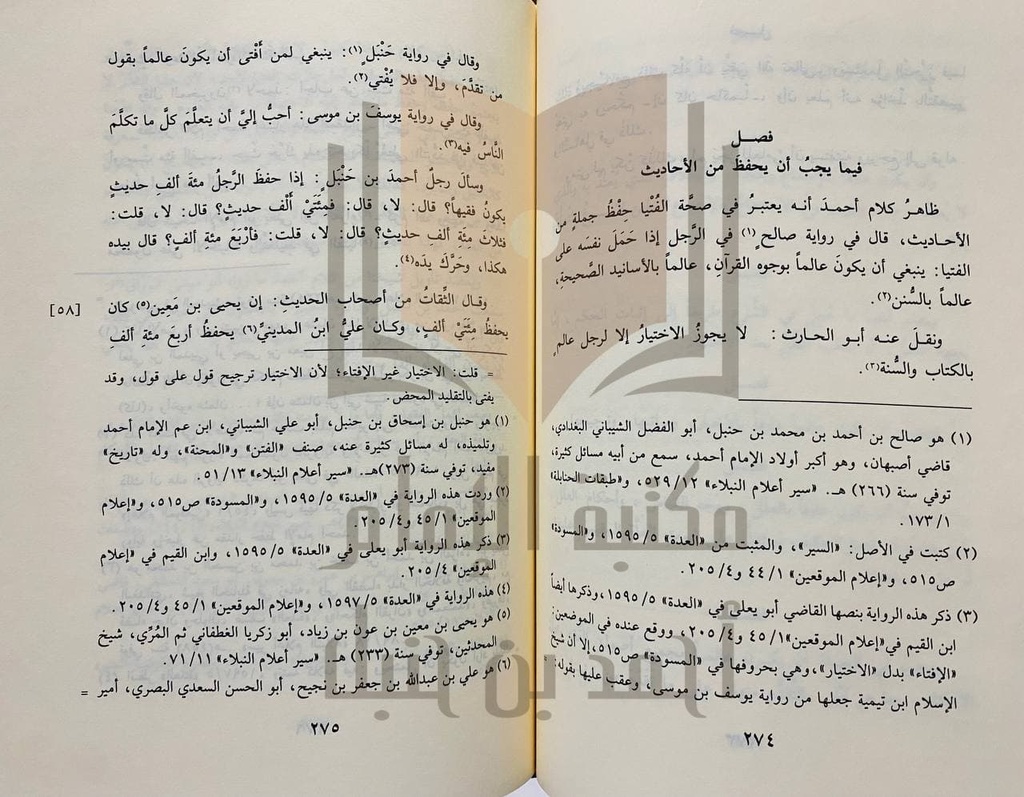 فصـــل
فيما يجبُ أن يحفظَ من الأحاديث
ظاهرُ كلام أحمدَ أنه يعتبرُ في صحَّة الفُتْيا حِفْظُ جملةٍ من
الأحاديث، قال في رواية صالح(١) في الرَّجل إذا حَمَلَ نفسَه على
الفتيا: ينبغي أن يكونَ عالماً بوجوه القرآنِ، عالماً بالأسانيد الصَّحيحةِ،
عالماً بالسُّنن(٢).
ونقلَ عنه أبو الحارث: لا يجوزُ الاختيارُ إلا لرجل عالمٍ
بالكتاب والسُّنة(٣).
(١) هو صالح بن أحمد بن محمد بن حنبل، أبو الفضل الشيباني البغدادي،
قاضي أصبهان، وهو أكبر أولاد الإمام أحمد، سمع من أبيه مسائل كثيرة،
توفي سنة (٢٦٦) هـ. «سير أعلام النبلاء» ٥٢٩/١٢، و«طبقات الحنابلة»
١٧٣/١.
(٢) كتبت في الأصل: «السير»، والمثبت من «العدة» ١٥٩٥/٥، و«المسودة»
ص٥١٥، و«إعلام الموقعين» ٤٤/١ و٢٠٥/٤.
(٣) ذكر هذه الرواية بنصها القاضي أبو يعلى في «العدة» ١٥٩٥/٥، وذكرها أيضاً
ابن القيم في «إعلام الموقعين» ٤٥/١ و٢٠٥/٤، ووقع عنده في الموضعين:
«الإفتاء» بدل «الاختيار»، وهي بحروفها في «المسودة» ص٥١٥، إلا أن شيخ
الإسلام ابن تيمية جعلها من رواية يوسف بن موسى، وعقب عليها بقوله:
٢٧٤
وقال في رواية حَنْبَلٍ(١): ينبغي لمن أَفْتى أن يكونَ عالماً بقول
من تقدَّمَ، وإلا فلا يُفْتي(٢).
وقال في رواية يوسفَ بن موسى: أحبُّ إليَّ أن يتعلَّمَ كلَّ ما تكلَّمَ
النَّاسُ فيه(٣).
وسألَ رجلٌ أحمدَ بن حَنْبَلٍ: إذا حفظَ الرَّجلُ مئةَ ألفِ حديثٍ
يكونُ فقيهاً؟ قال: لا، قال: فمِئَتَيْ أَلْف حديثٍ؟ قال: لا، قلت:
فثلاثَ مِئَةِ ألفِ حديثٍ؟ قال: لا، قلت: فأرْبَعَ مئةِ ألفٍ؟ قال بيده
هكذا، وحَرَّكَ يدَه(٤).
وقال الثِّقاتُ من أصحاب الحديثِ: إن يحيى بن مَعِين(٥) كان [٥٨]
يحفظُ مِئَتَيْ ألفٍ، وكان عليُّ ابنُ المدينيِّ(٦) يحفظُ أربعَ مئةِ ألفِ
= قلت: الاختيار غير الإفتاء؛ لأن الاختيار ترجيح قول على قول، وقد
يفتى بالتقليد المحض.
(١) هو حنبل بن إسحاق بن حنبل، أبو علي الشيباني، ابن عم الإمام أحمد
وتلميذه، له مسائل كثيرة عنه، صنف «الفتن» و«المحنة»، وله «تاريخ»
مفيد، توفي سنة (٢٧٣)هـ. «سير أعلام النبلاء» ٥١/١٣.
(٢) وردت هذه الرواية في «العدة» ١٥٩٥/٥، و«المسودة» ص٥١٥، و«إعلام
الموقعين» ٤٥/١ و٢٠٥/٤.
(٣) ذكر هذه الرواية أبو يعلى في «العدة» ١٥٩٥/٥، وابن القيم في «إعلام
الموقعين» ٢٠٥/٤.
(٤) هذه الرواية في «العدة» ١٥٩٧/٥، و«إعلام الموقعين» ٤٥/١ و٢٠٥/٤.
(٥) هو يحيى بن معين بن عون بن زياد، أبو زكريا الغطفاني ثم المُرِّي، شيخ
المحدثين، توفي سنة (٢٣٣) هـ. «سير أعلام النبلاء» ٧١/١١.
(٦) هو علي بن عبدالله بن جعفر بن نجيح، أبو الحسن السعدي البصري، أمير =
٢٧٥